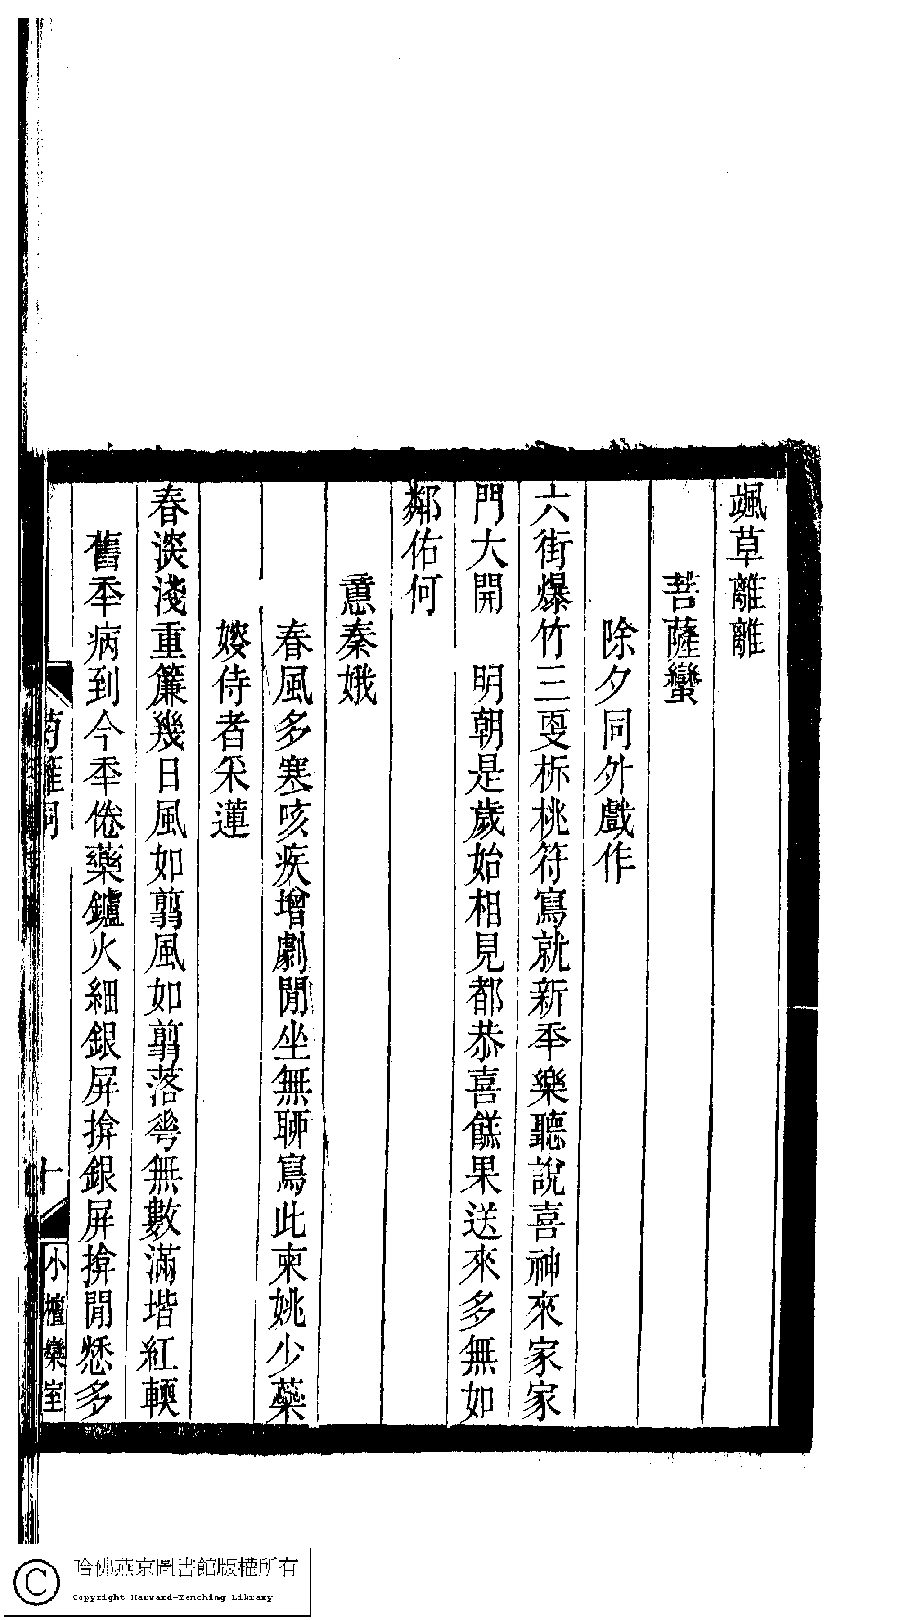 颯草離離
菩薩蠻
除夕同外戲作
六街爆竹三更柝桃符寫就新秊樂聽說喜神來家家
門大開　明朝是歲始相見都恭喜餻果送來多無如
鄰佑何
憶秦娥
春風多寒咳疾增劇閒坐無聊寫此柬姚少蘂
嫂侍者采蓮
春淡淺重簾幾日風如翦風如翦落芲無數滿堦紅輭
舊秊病到今秊倦藥鑪火細銀屏揜銀屏揜閒愁多
十
小檀欒室
哈佛燕京圖書館版權所有
Copyright Harvard-Yenching Library